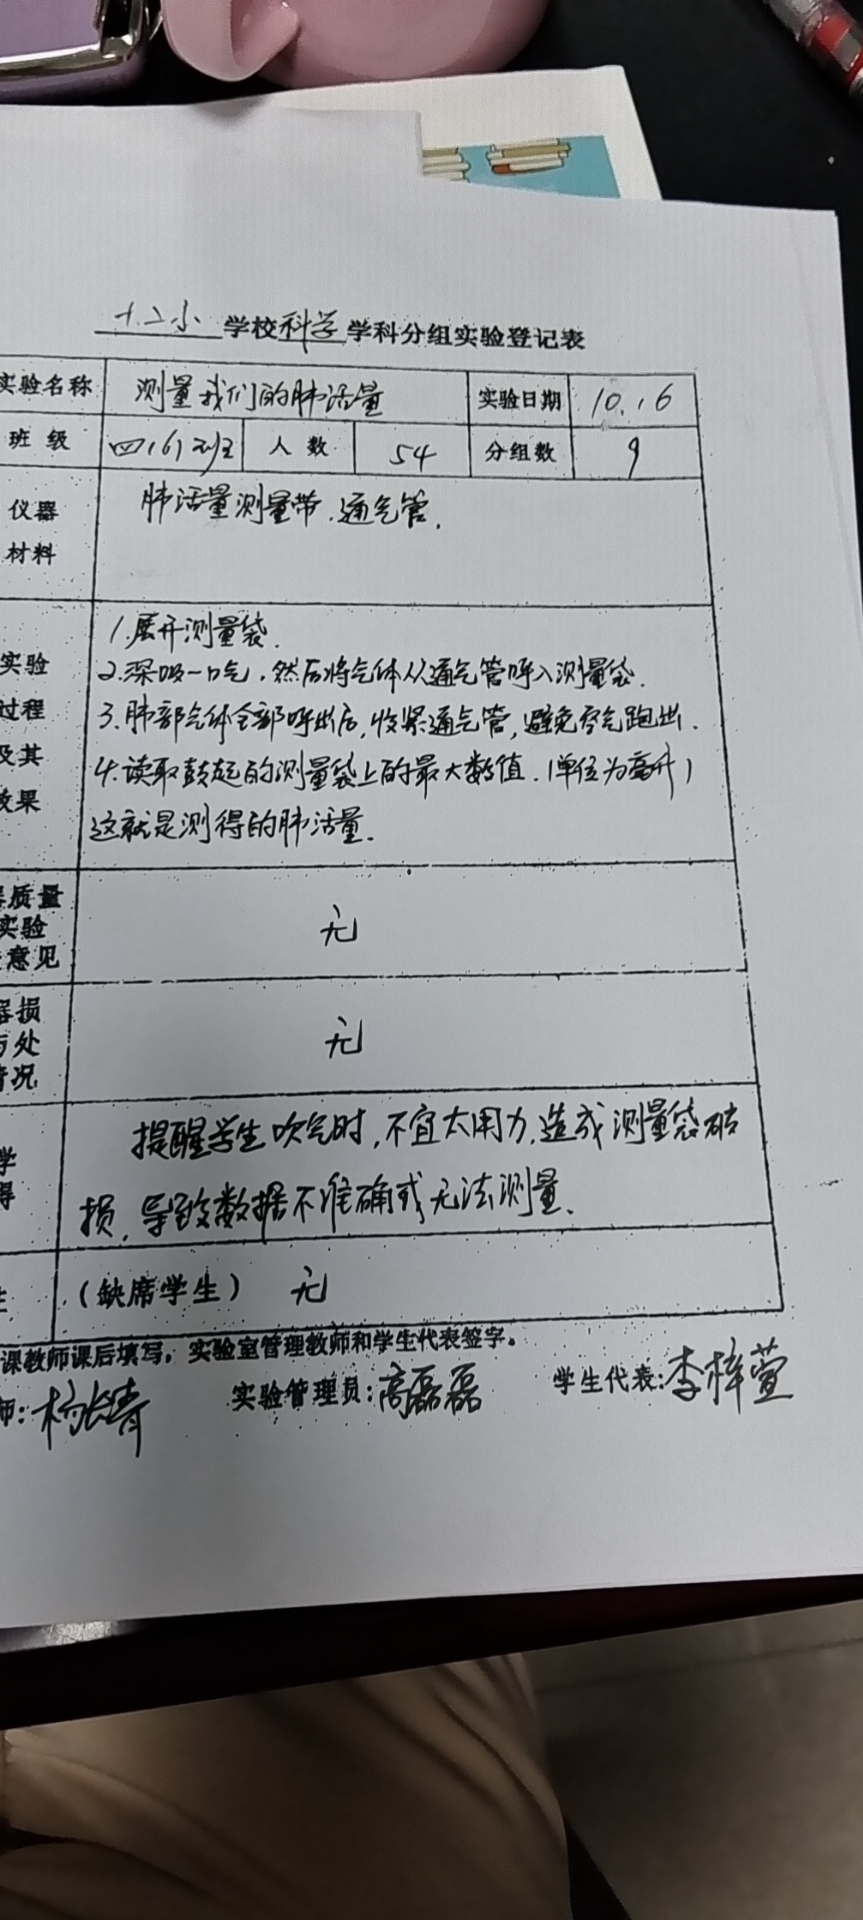 十二小学校科学学科分组实验登记表
实验名称 测量我们的肺活量 实验日期 10.16
班级 四(6)班 人数 54 分组数 9
仪器 肺活量测量带.通气管.
材料
1.展开测量袋.
实验 2.深吸一口气,然后将气体从通气管呼入测量袋.
过程 3.肺部气体全部呼出后,收紧通气管,避免空气跑出.
及其 4.读取鼓起的测量袋上的最大数值.(单位为毫升)
效果 这就是测得的肺活量.
质量
实验 无
意见
损
处 无
情况
提醒学生吹气时,不宜太用力,造成测量袋破
学
得 损,导致数据不准确或无法测量.
(缺席学生) 无
课教师课后填写,实验室管理教师和学生代表签字。
师:杨长青 实验管理员:高磊磊 学生代表:李梓萱